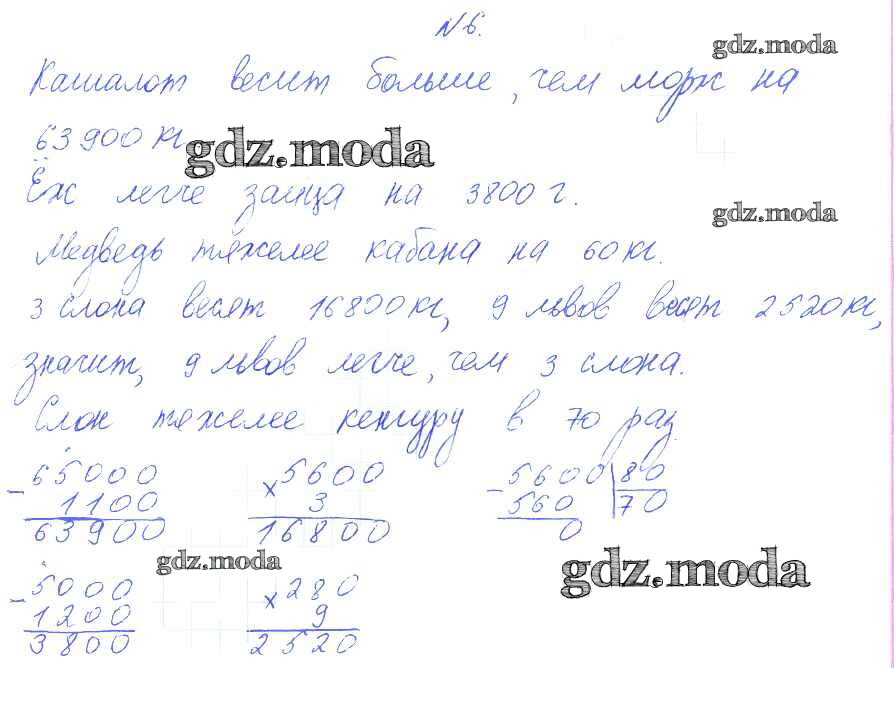 №6.
gdz.moda
Кашалот весит больше, чем морж на
63900 кг
gdz.moda
Ёж легче зайца на 3800 г.
gdz.moda
Медведь тяжелее кабана на 60 кг.
3 слона весят 16800 кг, 9 львов весят 2520 кг,
значит, 9 львов легче, чем 3 слона.
Слон тяжелее кенгуру в 70 раз.
- 65000
1100
63900
× 5600
3
16800
- 5600 | 80
560 | 70
0
gdz.moda
gdz.moda
- 5000
1200
3800
× 280
9
2520